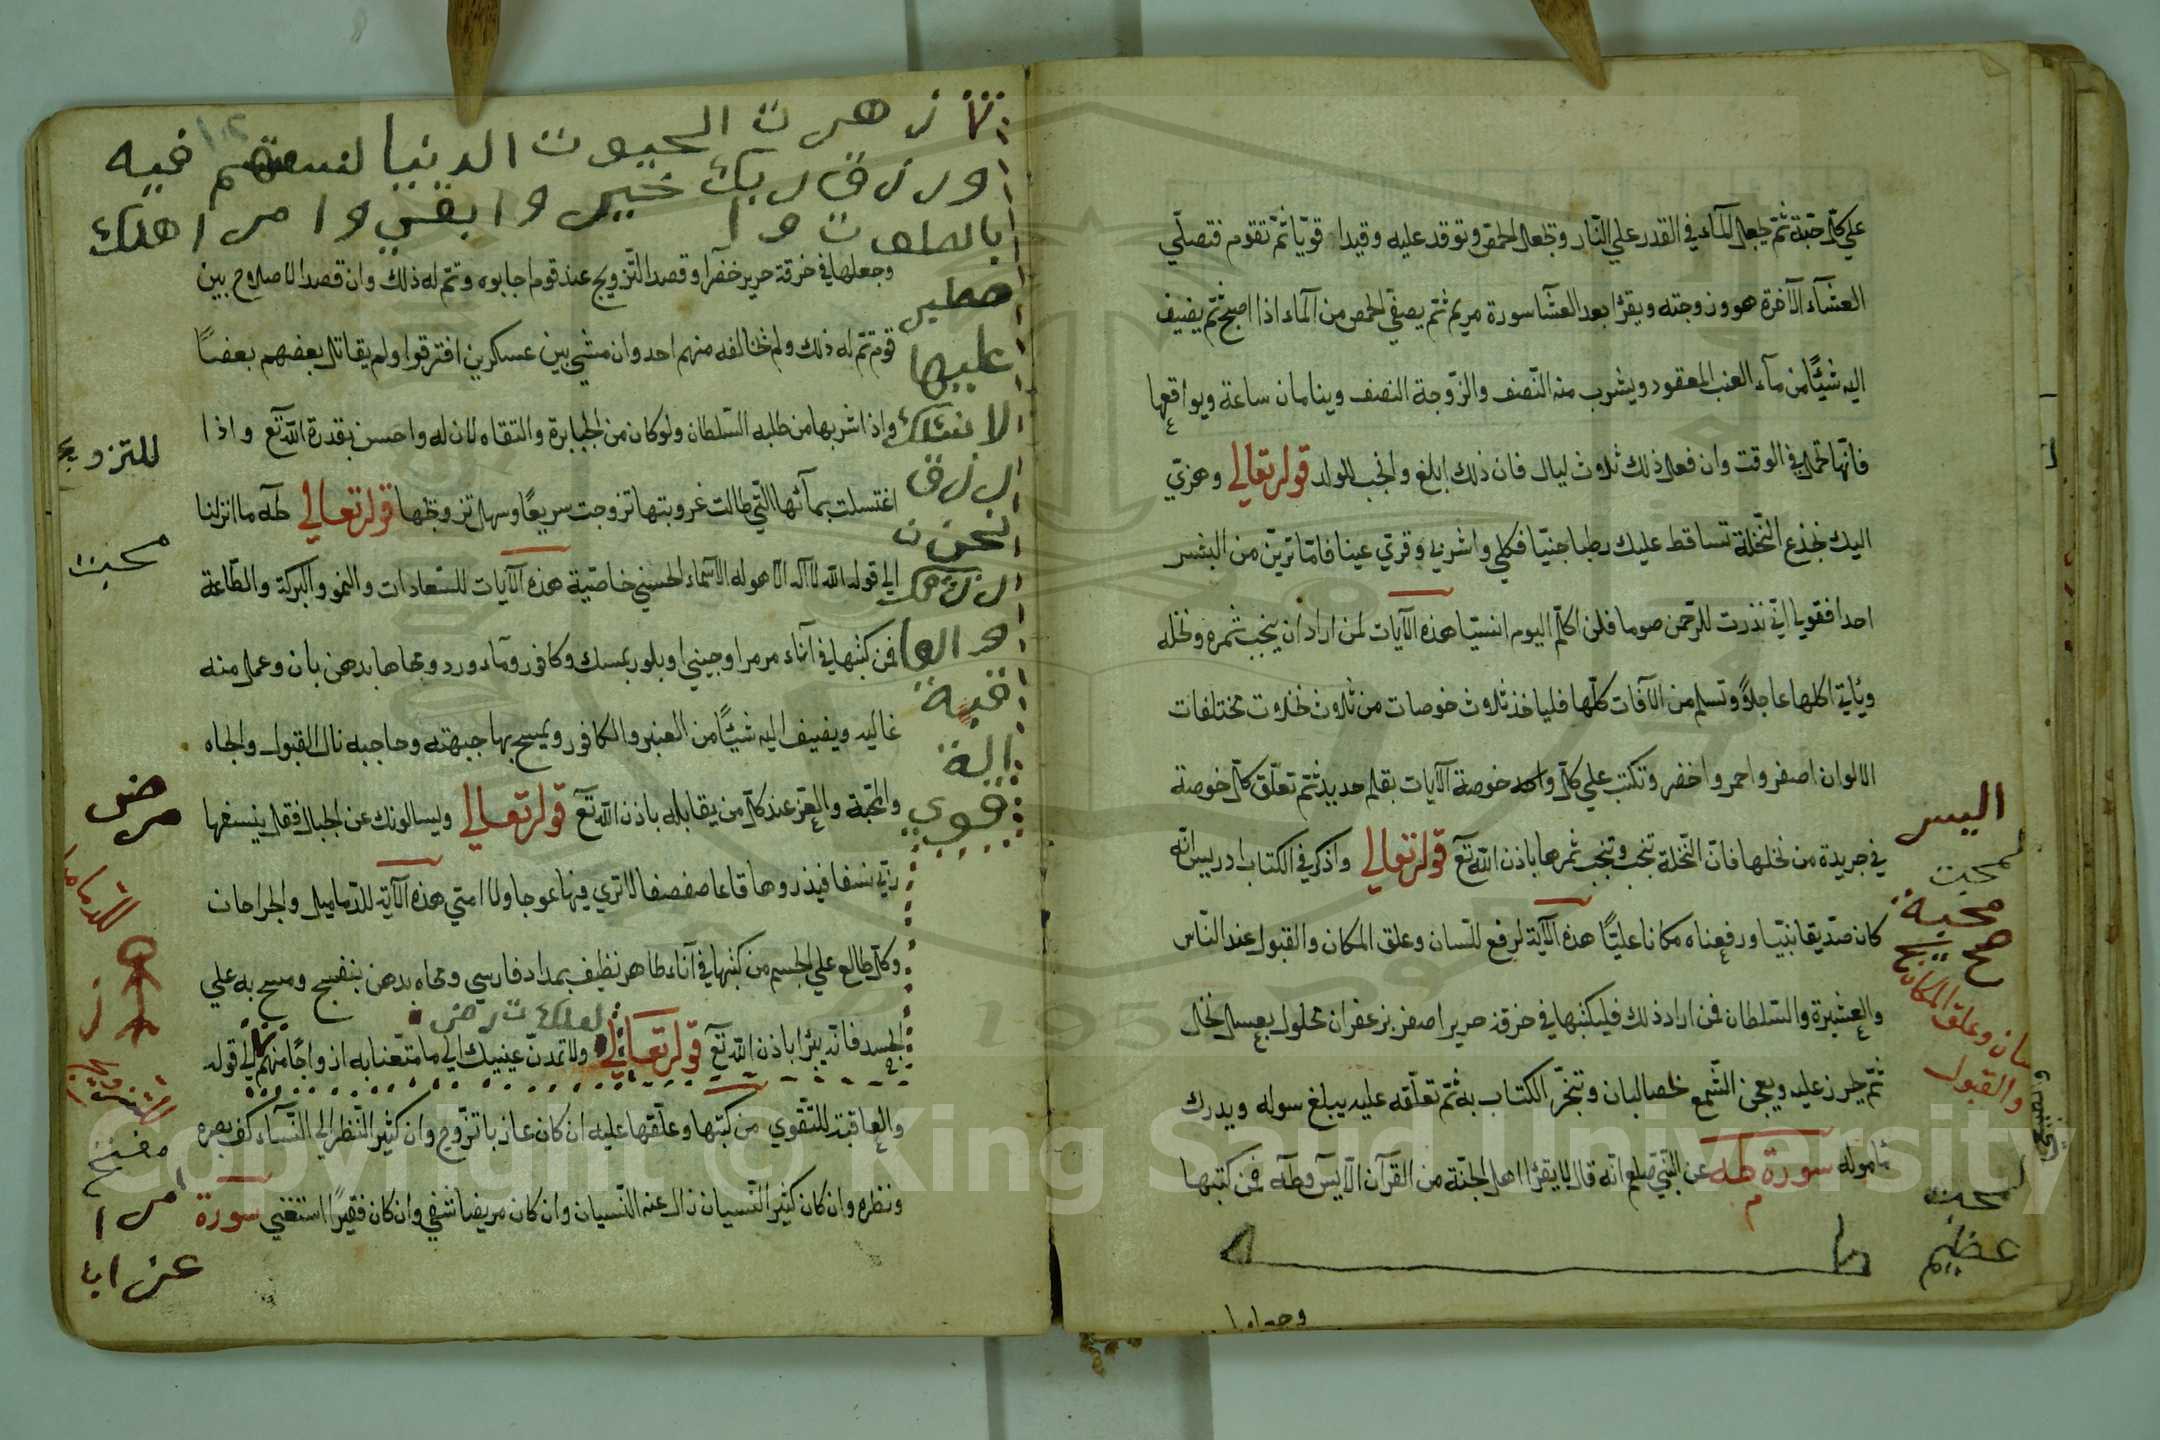 علي كلّ حبّة ثمّ تجعل المآء في القدر علي النّار وتجعل الحمّص وتوقد عليه وقيدا قويّا ثمّ تقوم فتصلّي
العشآء الآخرة هو وزوجته ويقرٔا بعد العشآ سورة مريم ثمّ يصفّي الحمص من المآء اذا اصبح ثمّ يضيف
اليه شيئًا من مآء العنب المعقود ويشرب منه النّصف والزّوجة النصف وينامان ساعة ويواقعها
فانّها تحمل في الوقت وان فعل ذلك ثلاث ليال فان ذلك ابلغ وانجب للولد قوله تعالي وهزّي
اليك بجذع النّخلة تساقط عليك رطبا جنيّا فكلي واشربي وقرّي عينا فامّا ترينّ من البشر
احدا فقولي انّي نذرت للرّحمن صوما فلن اكلّم اليوم انسيّا هذه الآيات لمن اراد ان ينجب ثمره ونخله
وئاتي اكلها عاجلاً وتسلم من الآفات كلّها فلياخذ ثلاث خوصات من ثلاث نخلات مختلفات
الالوان اصفر واحمر واخضر وتكتب علي كلّ واحد خوصة الآيات بقلم حديد ثمّ تعلّق كلّ خوصة
في جريدة من نخلها فانّ النّخلة تنجب وتنجب ثمرها باذن الله تع قوله تعالي واذكر في الكتاب ادريس انّه
كان صدّيقا نبيّا ورفعناه مكانا عليًّا هذه الآية لرفع للسان وعلق المكان والقبول عند النّاس
والعشيرة والسّلطان فمن اراد ذلك فليكتبها في خرقة حرير اصفر بزعفران محلول بعسل نخل
ثمّ يطرز عليه ويعجن الشّمع بخصالبان وتبخّر الكتاب به ثمّ تعلّقه عليه يبلغ سوله ويدرك
مٔاموله سورة طه عن النّبي صلعم انّه قال لا يقرٔا اهل الجنّة من القرآن الاّ يس وطه فمن كتبها
اليسر
لمحبت
محبة
سان وعلق المكان
والقبول
لمحبت
عظيم
زهرت الحيوت الدنيا لنفتنهم فيه
ورزق ربك خير وابقي وا مر اهلك
بالصلوت وا
صطبر
عليها
لا نسئلك
رزق
نحن ن
رزقك
و العا
قبة
للتقوي
وجعلها في خرقة حرير خضرا وقصد التّزويج عند قوم اجابوه وتمّ له ذلك وان قصد الاصلاح بين
قوم تمّ له ذلك ولم يخالفه منهم احد وان مشي بين عسكرين افترقوا ولم يقاتل بعضهم بعضًا
واذا شربها من طلبه السّلطان ولو كان من الجبابرة والتقاه لان له واحسن بقدرة الله تع واذا
اغتسلت بمآئها الّتي طالت غروبتها تزوجت سريعًا وسهل تزويجها قوله تعالي طه ما انزلنا
الي قوله الله لا اله الاّ هو له الاسماء الحسني خاصّية هذه الآيات للسّعادات والنمو والبركة والطّاعة
فمن كتبها في آناء مرمر او جيني او بلور بمسك وكافور ومآء ورد ومحاها بدهن بان وعمل منه
غاليه ويضيف اليه شيئًا من العنبر والكافور ويمسح بها جبهته وحاجبه نال القبول والجاه
والمحبّة والعزّ عند كلّ من يقابله باذن الله تع قوله تعالي ويسالونك عن الجبال فقل ينسفها
ربّي نسفا فيذروها قاعا صفصفا لا تري فيها عوجا ولا امتي هذه الآية للدّماميل والجراحات
وكلّ طالع علي الجسم من كتبها في آناء طاهر نظيف بمداد فارسي ومحاه بدهن بنفسج ومسح به علي
لعلك ترضي
الجسد فانّه يبرٔا باذن الله تع قوله تعالي ولا تمدنّ عينيك الي ما متّعنا به ازواجًا منهم الي قوله
والعاقبة للتّقوي من كتبها وعلّقها عليه ان كان عازبا تزّوج وان كثير النّظر الي النّسآء كف بصره
ونظره وان كان كثير النّسيان زال عنه النّسيان وان كان مريضا شفي وان كان فقيرًا استغني سورة
للتزويج
محبت
مرض
للدّمامل
وجعلها